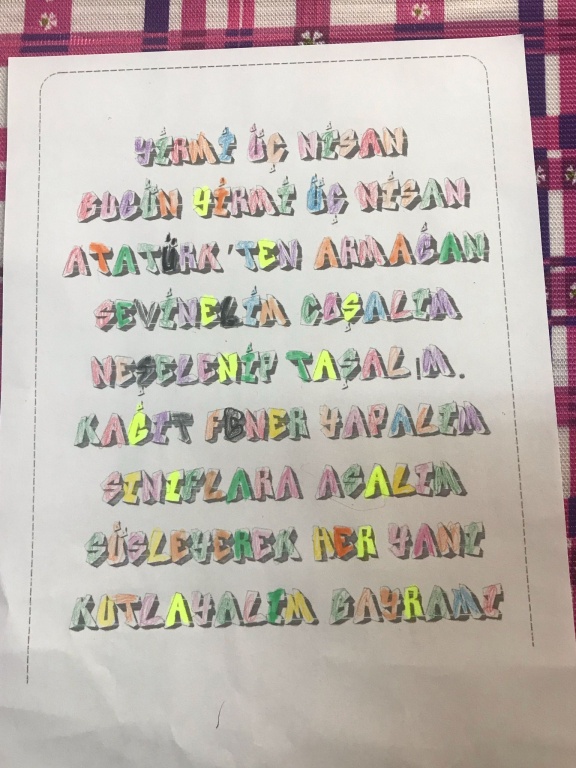 YİRMİ ÜÇ NİSAN
BUGÜN YİRMİ ÜÇ NİSAN
ATATÜRK'TEN ARMAĞAN
SEVİNELİM COŞALIM
NEŞELENİP TAŞALIM.
KAĞIT FENER YAPALIM
SINIFLARA ASALIM
SÜSLEYEREK HER YANI
KUTLAYALIM BAYRAMI